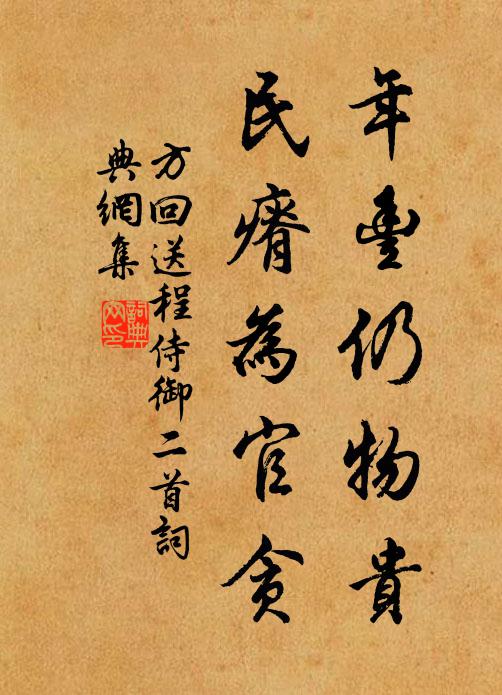 年豐仍物貴
民瘠為官貪
方回送程侍御二首詞
典網集
詞典
網印